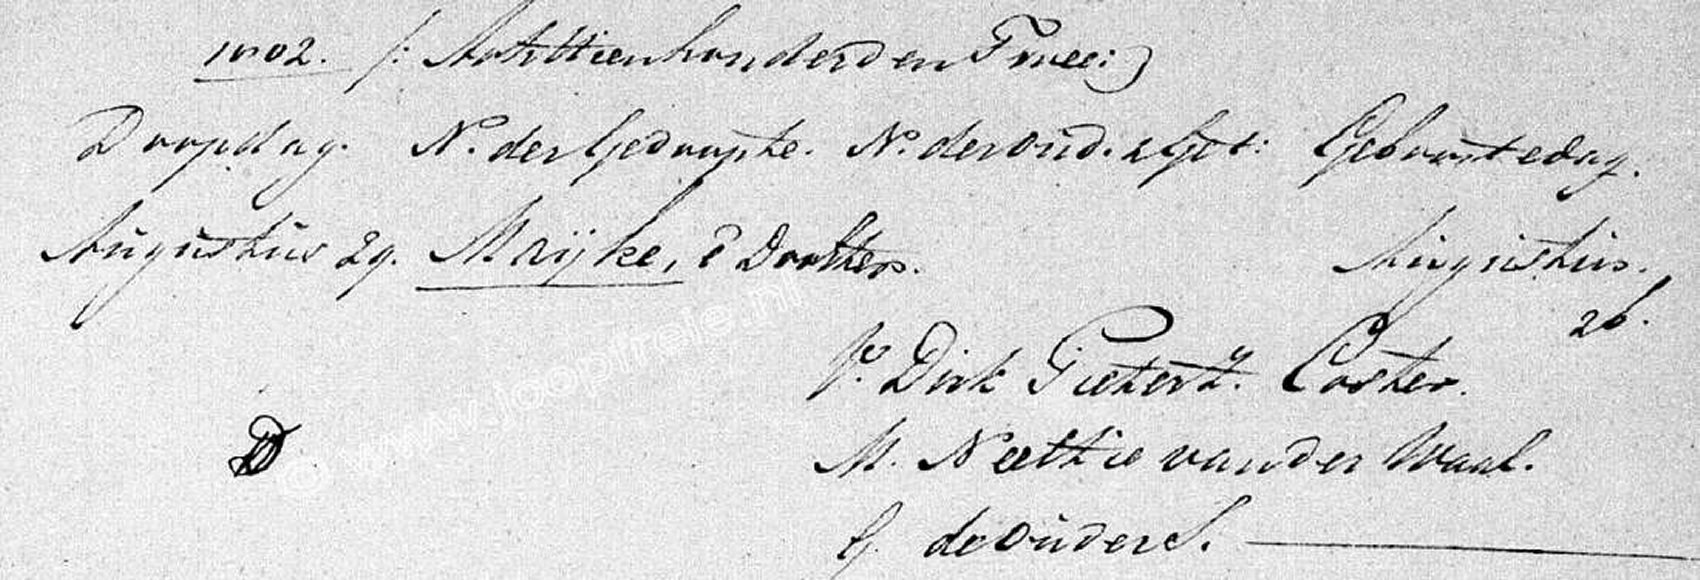 1802. /: Achttienhonderd en Twee:)
Doopdag. N. der Gedoopte. N. der oud. & Get: Geboortedag.
Augustus 29. Maijke, Dochter. Augustus.
26.
V. Dirk Pieterz. Coster.
M. Neeltie van der Waal.
G. de Ouders.
D